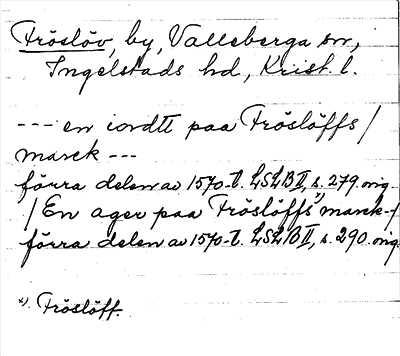 Fröslöv, by, Valleberga sn,
Ingelstads hd, Krist. l.
--- en iordtt paa Fröslöffs /
marck ---
förra delen av 1570-t. LSLB II, s. 279 orig.
/ En ager paa Fröslöffs x) marck - /
förra delen av 1570-t. LSLB II, s. 290. orig.
x). Fröslöff.